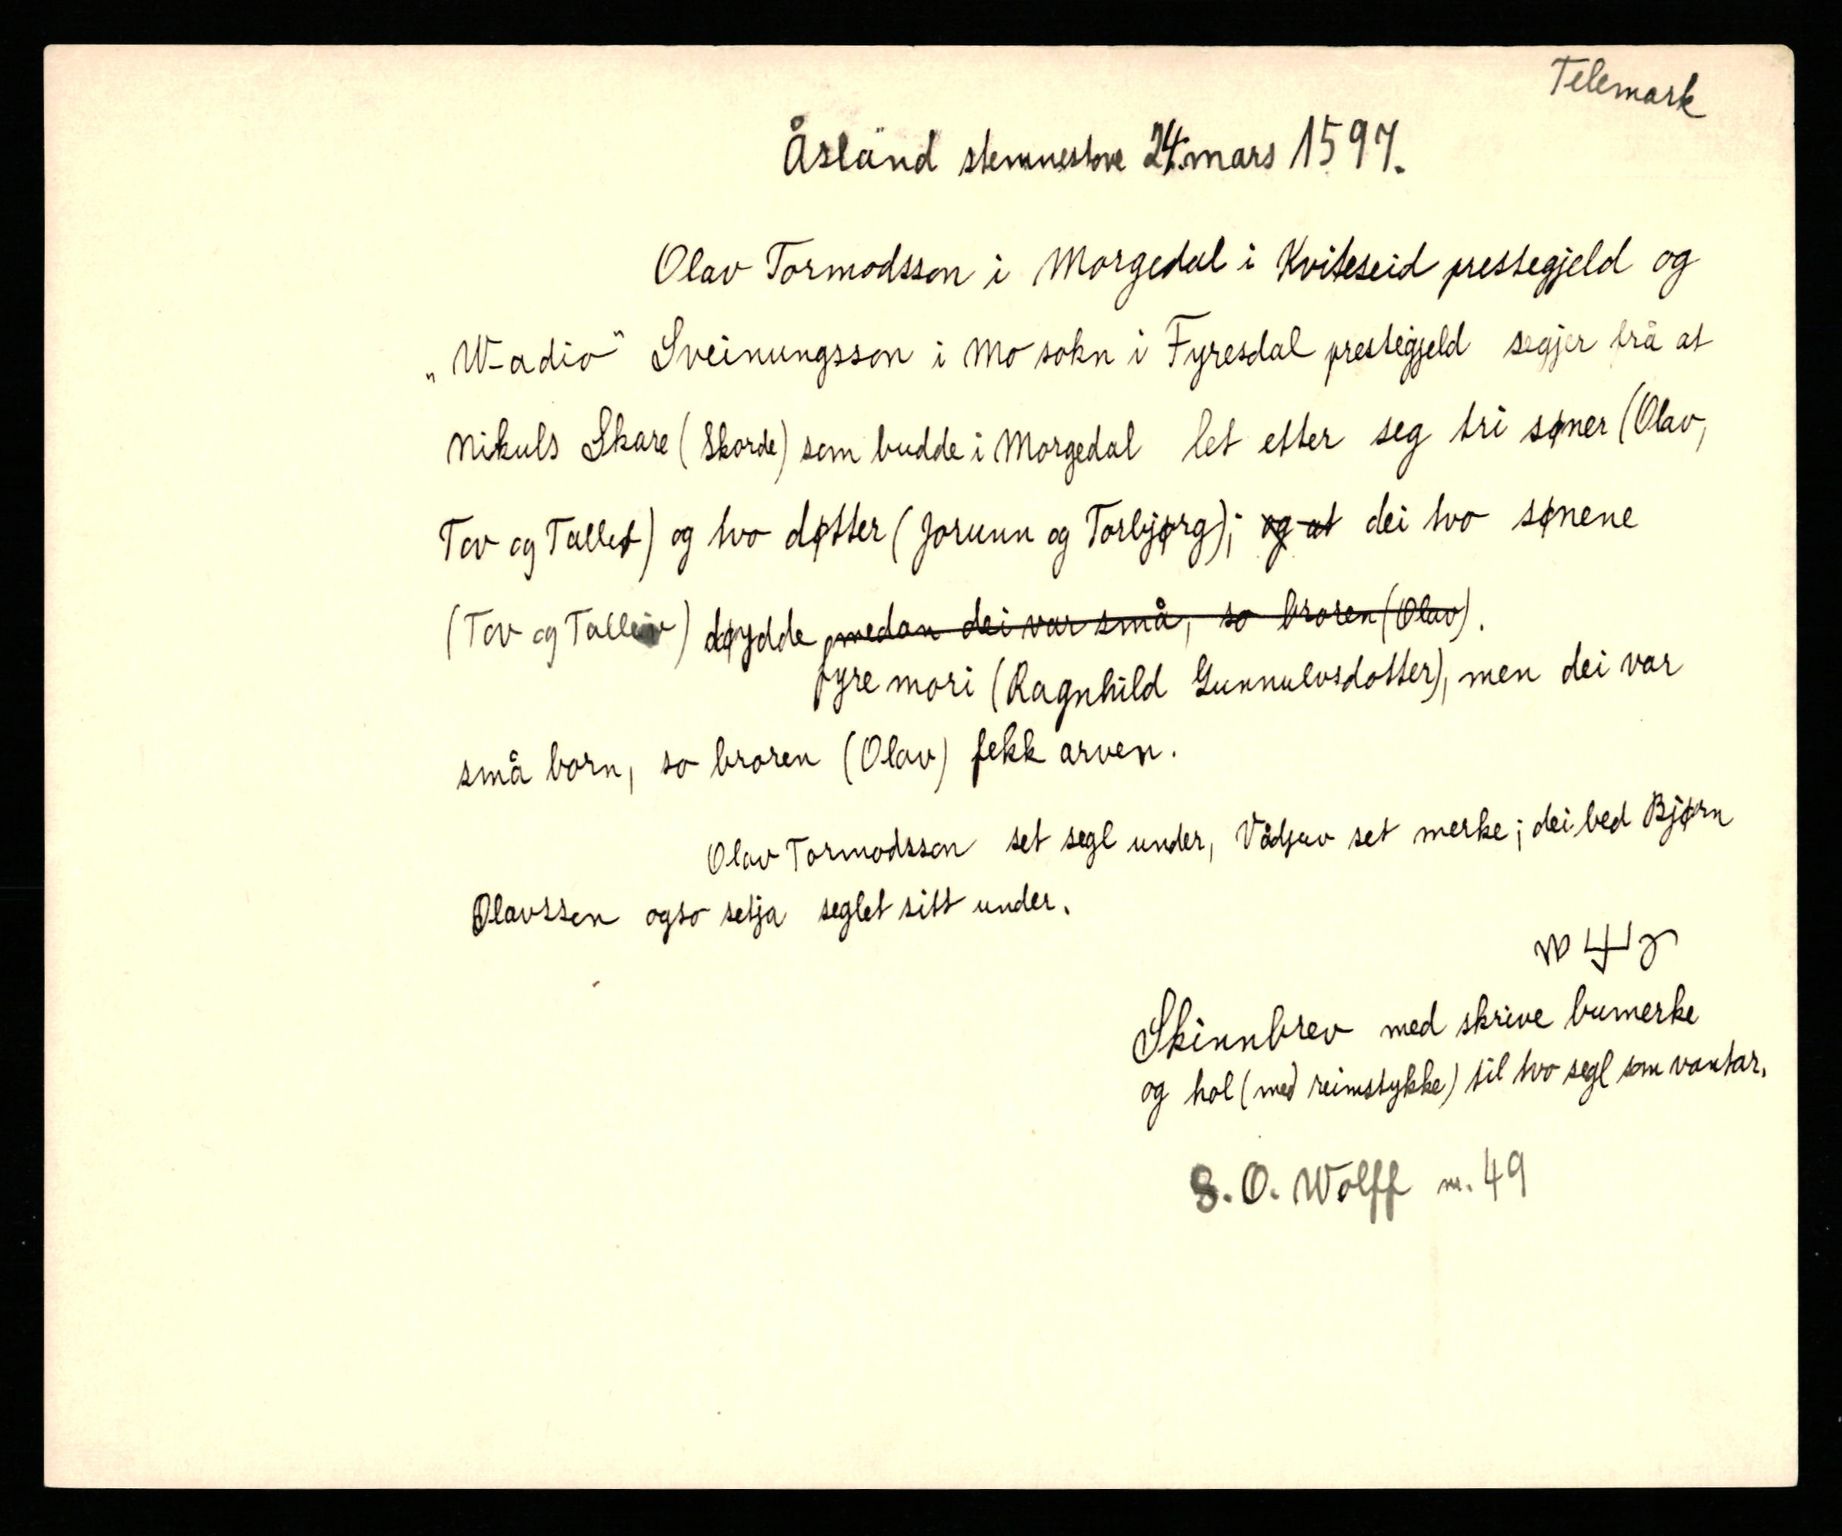 Telemark
Åsland stemnestove 24. mars 1597.
Olav Tormodsson i Morgedal i Kviteseid prestegjeld og
„Wadio" Sveinungsson i Mo sokn i Fyresdal prestegjeld segjer frå at
Nikuls Skare (Skorde) som budde i Morgedal let etter seg tri søner (Olav,
Tov og Tallef) og tvo døtter (Jorunn og Torbjørg); og at dei tvo sønene
(Tov og Talleiv) døydde medan dei var små, so broren (Olav).
fyre mori (Ragnhild Gunnulvsdotter), men dei var
små born, so broren (Olav) fekk arven.
Olav Tormodsson set segl under, Vådjuv set merke; dei bed Bjørn
Olavsson ogso setja seglet sitt under.
Skinnbrev med skrive bumerke
og hol (med reimstykke) til tvo segl som vantar.
S. O. Wolff nr. 49